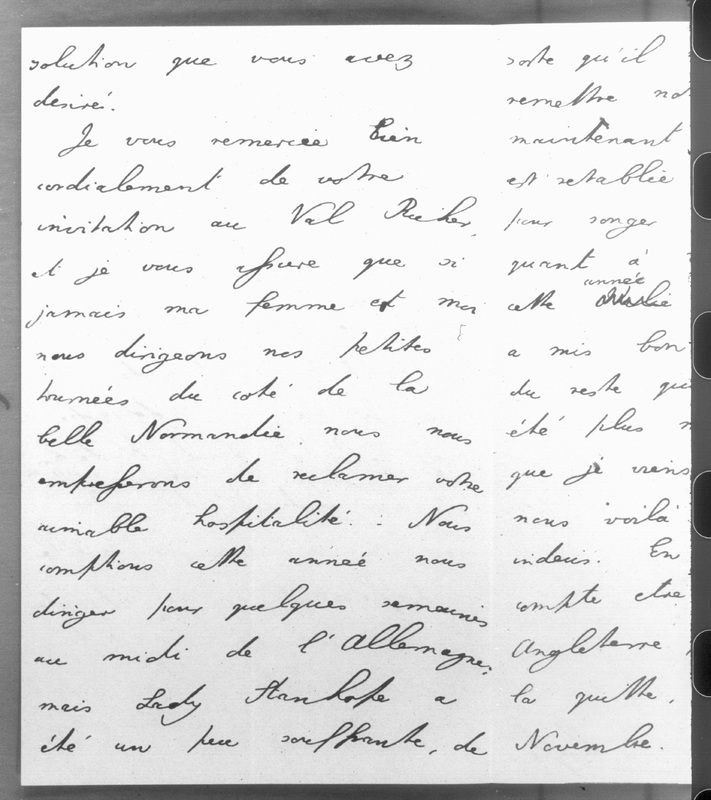 solution que vous avez
desiré.
Je vous remercie bien
cordialement de votre
invitation au Val Richer,
et je vous assure que si
jamais ma femme et moi
nous dirigeons nos petites
tournées du coté de la
belle Normandie, nous nous
empresserons de reclamer votre
aimable hospitalité. Nous
comptions cette anneé nous
diriger pour quelques semaines
au midi de l'Allemagne,
mais Lady Stanhope a
été un peu souffrante, de
sorte qu'il
remettre
maintenant
est retablie
pour songer
quant à
année
cette
a mis bon
du reste
été plus
que je viens
nous voilà
indecis. En
compte etre
Angleterre
la quitte,
Novembre.